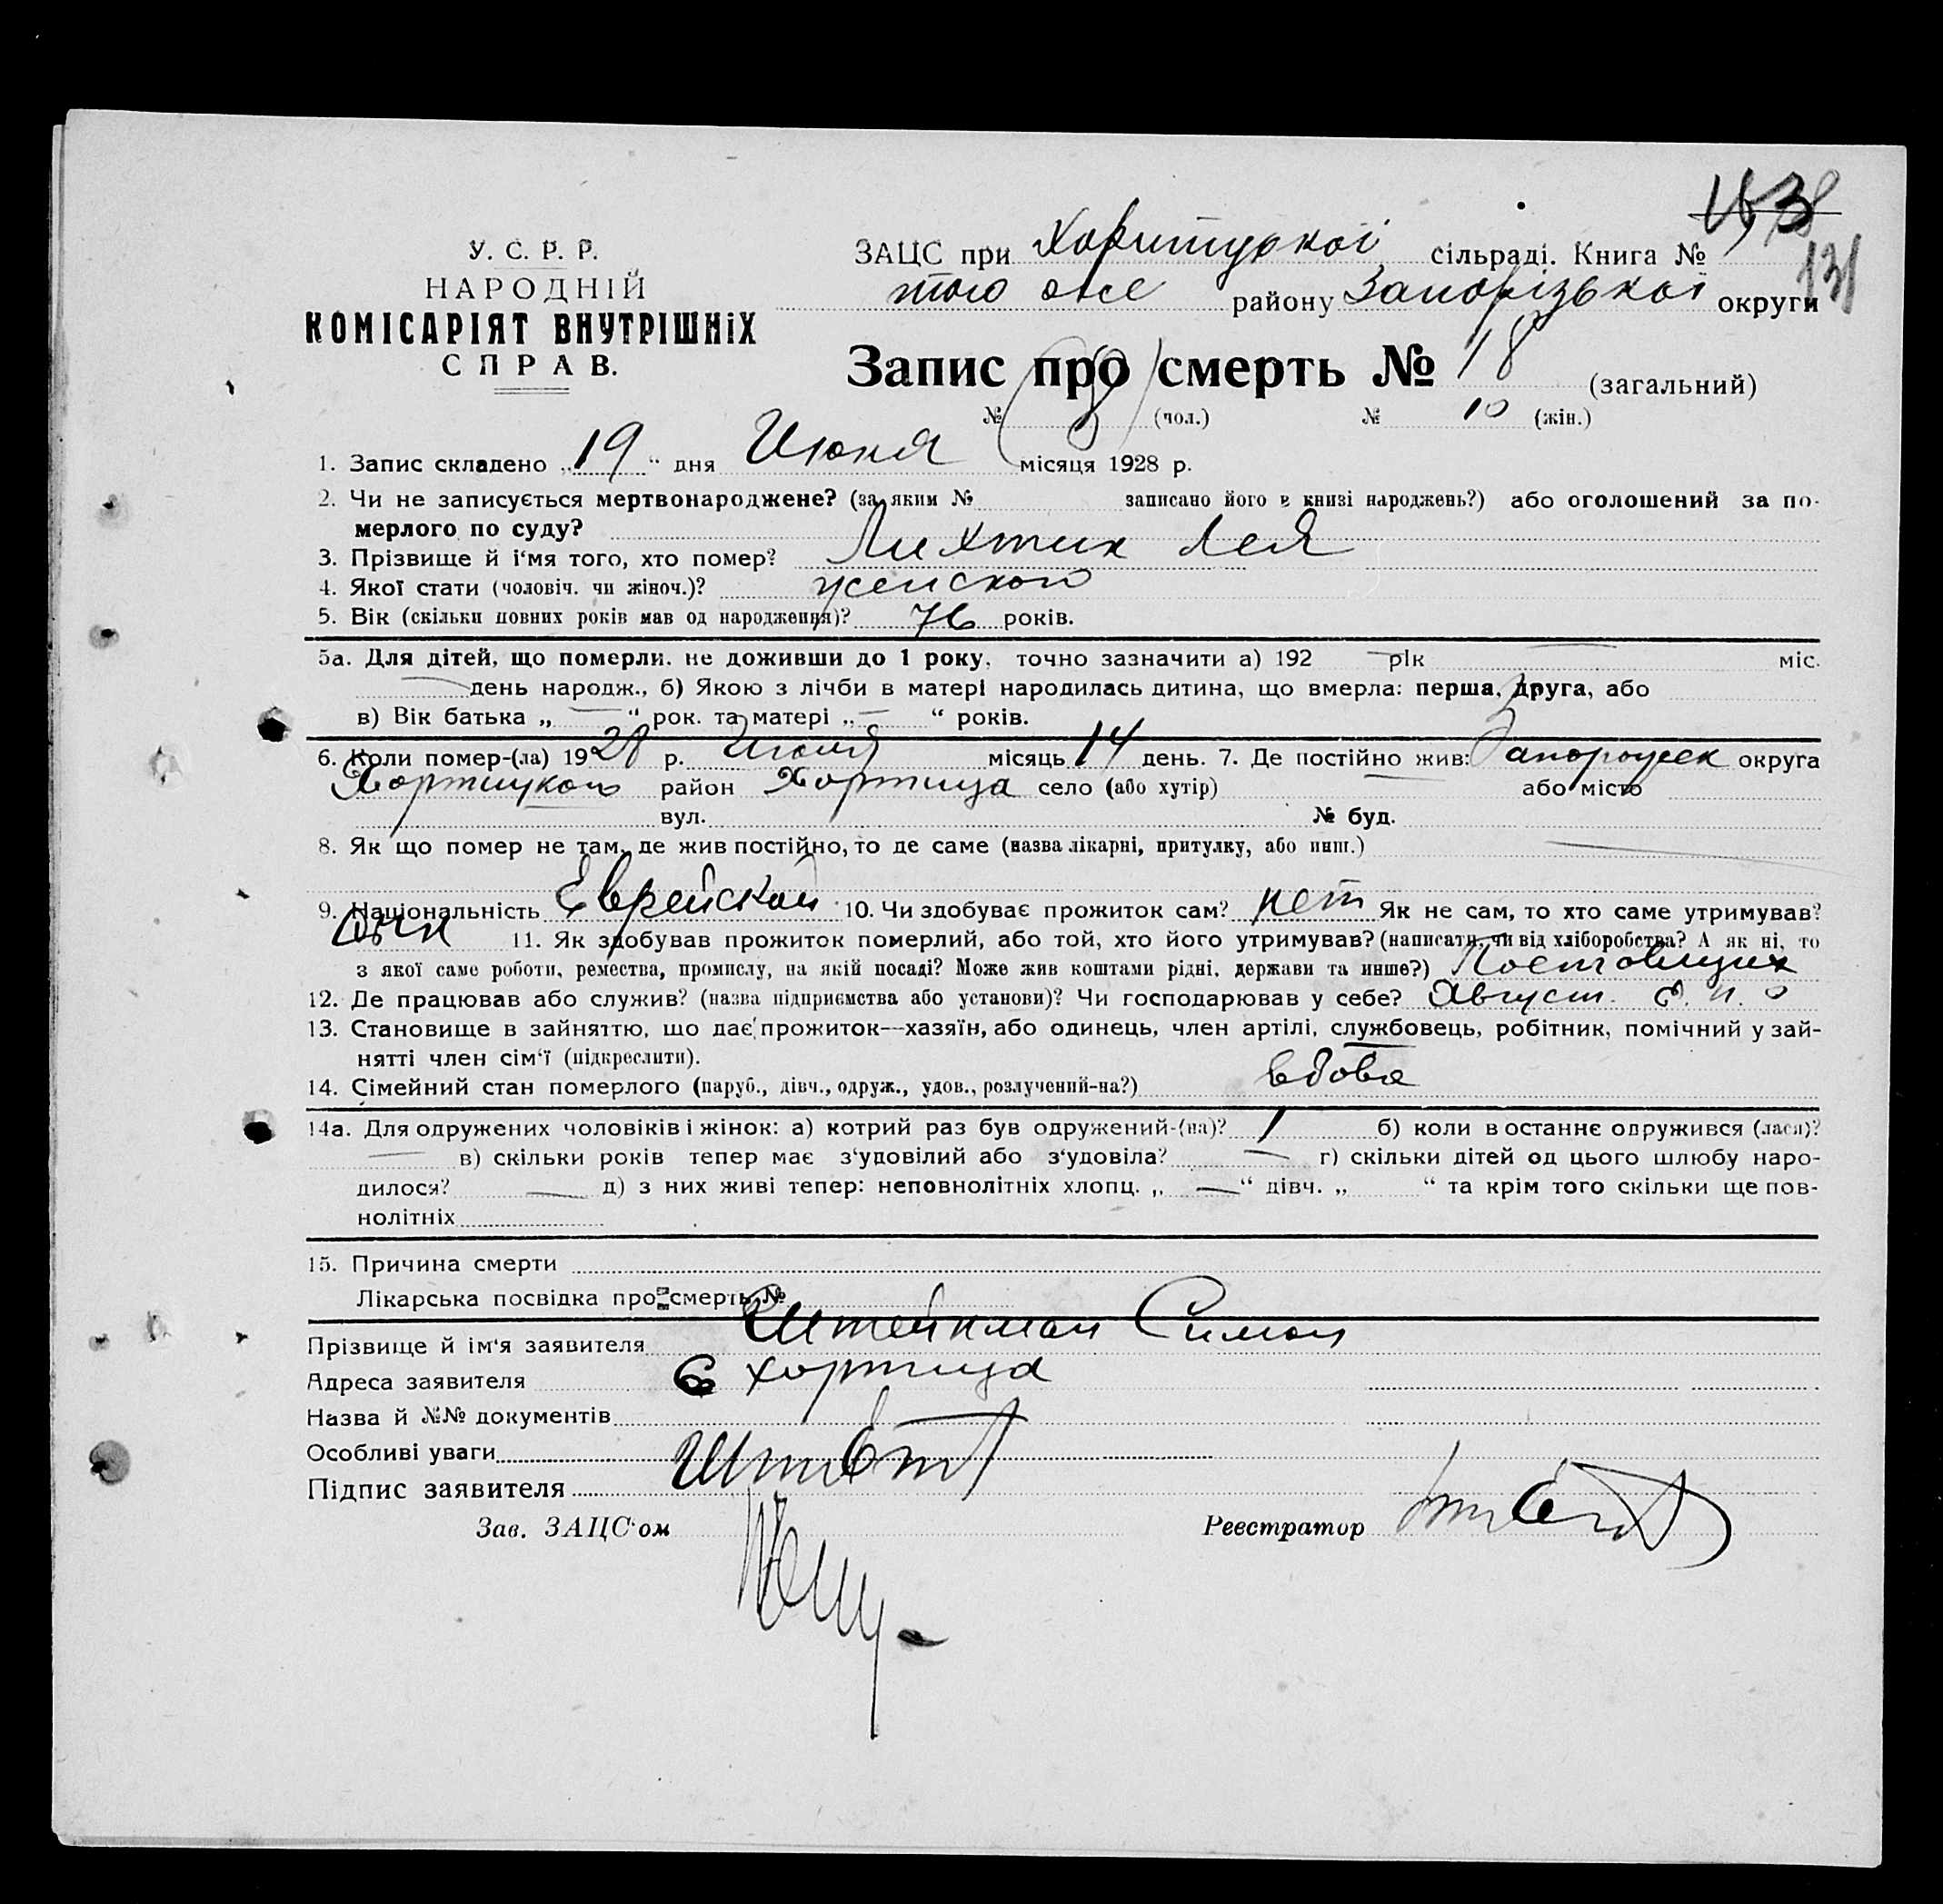 У. С. Р. Р.
НАРОДНІЙ
КОМІСАРІЯТ ВНУТРІШНІХ
СПРАВ.
131
ЗАЦС при сільраді. Книга №
того же району Запорізької округи
Запис про смерть № 18 (загальний)
№ (чол.) № 10 (жін.)
1. Запис складено „19“ дня Июня місяця 1928 р.
2. Чи не записується мертвонароджене? (за яким № записано його в книзі народжень?) або оголошений за по-
мерлого по суду?
3. Прізвище й і'мя того, хто помер? Лихтик Лея
4. Якої стати (чоловіч. чи жіноч.)? женского
5. Вік (скільки повних років мав од народження)? 76 років.
5а. Для дітей, що померли, не доживши до 1 року, точно зазначити а) 192 — рік — міс.
— день народж., б) Якою з лічби в матері народилась дитина, що вмерла: перша, друга, або
в) Вік батька „ — “ рок. та матері „ — “ років.
6. Коли помер-(ла) 1928 р. місяць 14 день. 7. Де постійно жив: округа
район Хортица село (або хутір) — або місто
вул. № буд.
8. Як що помер не там, де жив постійно, то де саме (назва лікарні, притулку, або инш.) —
9. Національність Еврейской 10. Чи здобуває прожиток сам? нет Як не сам, то хто саме утримував?
сын 11. Як здобував прожиток померлий, або той, хто його утримував? (написати, чи від хліборобства? А як ні, то
з якої саме роботи, ремества, промислу, на якій посаді? Може жив коштами рідні, держави та инше?)
12. Де працював або служив? (назва підприємства або установи)? Чи господарював у себе?
13. Становище в зайняттю, що дає прожиток—хазяїн, або одинець, член артілі, службовець, робітник, помічний у зай-
нятті член сім'ї (підкреслити).
14. Сімейний стан померлого (паруб., дівч., одруж., удов., розлучений-на?) вдова
14а. Для одружених чоловіків і жінок: а) котрий раз був одружений-(на)? 1 б) коли в останнє одружився (лася)?
— в) скільки років тепер має з'удовілий або з'удовіла? — г) скільки дітей од цього шлюбу наро-
дилося? — д) з них живі тепер: неповнолітніх хлопц. „ — “ дівч. „ “ та крім того скільки ще пов-
нолітніх
15. Причина смерти
Лікарська посвідка про смерть №
Прізвище й ім'я заявителя Штейнман Симон
Адреса заявителя С Хортица
Назва й №№ документів
Особливі уваги
Підпис заявителя
Зав. ЗАЦС'ом Реєстратор